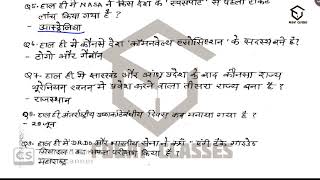 Q5. हाल ही में NASA ने किस देश के 'स्पेसपोर्ट' से पहला रॉकेट
लॉन्च किया गया है ?
- आस्ट्रेलिया
Q6. हाल ही में कौनसे देश 'कॉमनवेल्थ एसोसिएशन' के सदस्य बने हैं ?
- टोगो और गैबॉन
Q7. हाल ही में झारखंड और आंध्र प्रदेश के बाद कौनसा राज्य
यूरेनियम खनन में प्रवेश करने वाला तीसरा राज्य बना है ?
- राजस्थान
Q8. हाल ही में अंतर्राष्ट्रीय उष्णकटिबंधीय दिवस कब मनाया गया है ?
- 29 जून
Q9. हाल ही में DRDO और भारतीय सेना ने कहाँ 'एंटी टैंक गाइडेड
मिसाइल' का सफल परीक्षण किया है ?
- महाराष्ट्र
CS